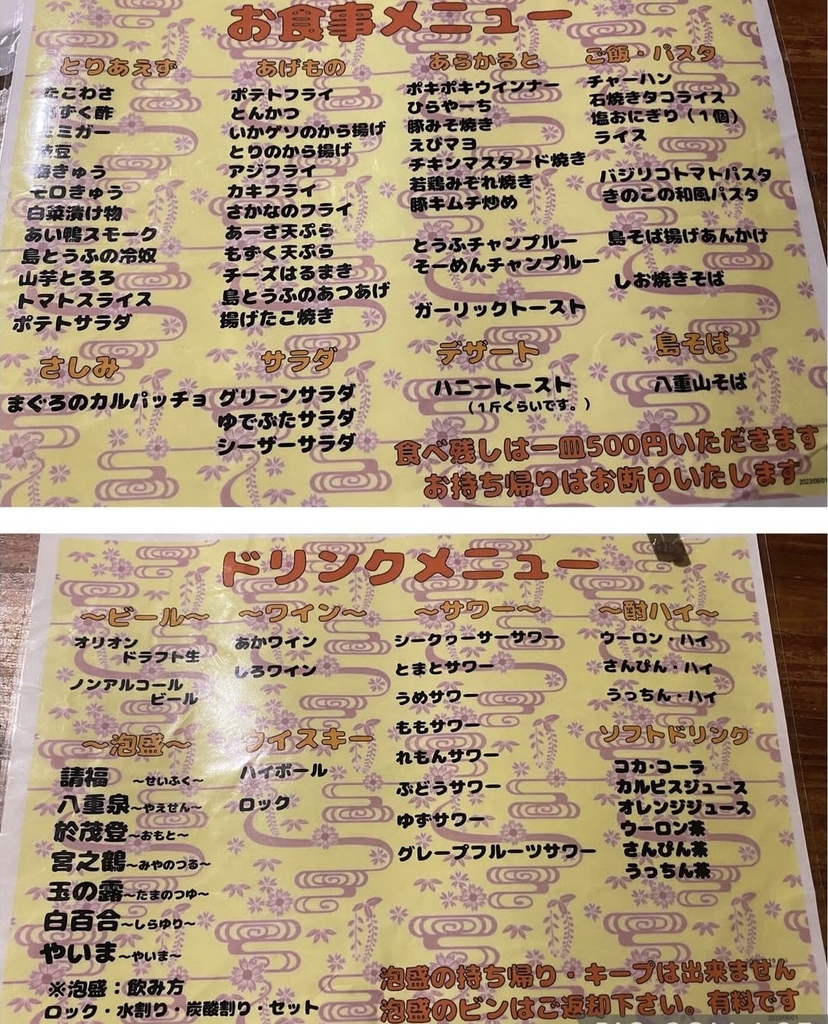 お食事メニュー
とりあえず
たこわさ
もずく酢
ミミガー
枝豆
梅きゅう
モロきゅう
白菜漬け物
あい鴨スモーク
島とうふの冷奴
山芋とろろ
トマトスライス
ポテトサラダ
あげもの
ポテトフライ
とんかつ
いかゲソのから揚げ
とりのから揚げ
アジフライ
カキフライ
さかなのフライ
あーさ天ぷら
もずく天ぷら
チーズはるまき
島とうふのあつあげ
揚げたこ焼き
あらかると
ポキポキウインナー
ひらやーち
豚みそ焼き
えびマヨ
チキンマスタード焼き
若鶏みぞれ焼き
豚キムチ炒め
とうふチャンプルー
そーめんチャンプルー
ガーリックトースト
ご飯・パスタ
チャーハン
石焼きタコライス
塩おにぎり（１個）
ライス
バジリコトマトパスタ
きのこの和風パスタ
島そば揚げあんかけ
しお焼きそば
さしみ
まぐろのカルパッチョ
サラダ
グリーンサラダ
ゆでぶたサラダ
シーザーサラダ
デザート
ハニートースト
（１斤くらいです。）
島そば
八重山そば
食べ残しは一皿500円いただきます
お持ち帰りはお断りいたします
2023/06/01
ドリンクメニュー
～ビール～
オリオン
ドラフト生
ノンアルコール
ビール
～ワイン～
あかワイン
しろワイン
～サワー～
シークヮーサーサワー
とまとサワー
うめサワー
ももサワー
れもんサワー
ぶどうサワー
ゆずサワー
グレープフルーツサワー
～酎ハイ～
ウーロン・ハイ
さんぴん・ハイ
うっちん・ハイ
～泡盛～
請福 ～せいふく～
八重泉～やえせん～
於茂登～おもと～
宮之鶴～みやのつる～
玉の露～たまのつゆ～
白百合～しらゆり～
やいま～やいま～
※泡盛：飲み方
ロック・水割り・炭酸割り・セット
ウイスキー
ハイボール
ロック
ソフトドリンク
コカ・コーラ
カルピスジュース
オレンジジュース
ウーロン茶
さんぴん茶
うっちん茶
泡盛の持ち帰り・キープは出来ません
泡盛のビンはご返却下さい。有料です